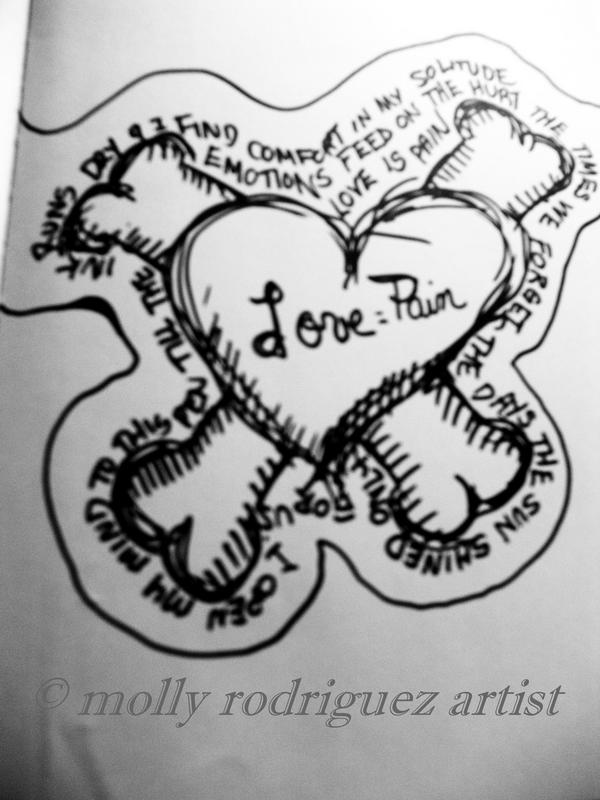 I FIND COMFORT IN MY SOLITUDE
EMOTIONS FEED ON THE HURT THE TIMES
LOVE IS PAIN
WE FORGET THE DAYS THE SUN SHINED
ONLY
FOR US
I OPEN MY MIND TO THIS PEN
TILL THE
INK RUNS DRY
Love = Pain
© molly rodriguez artist